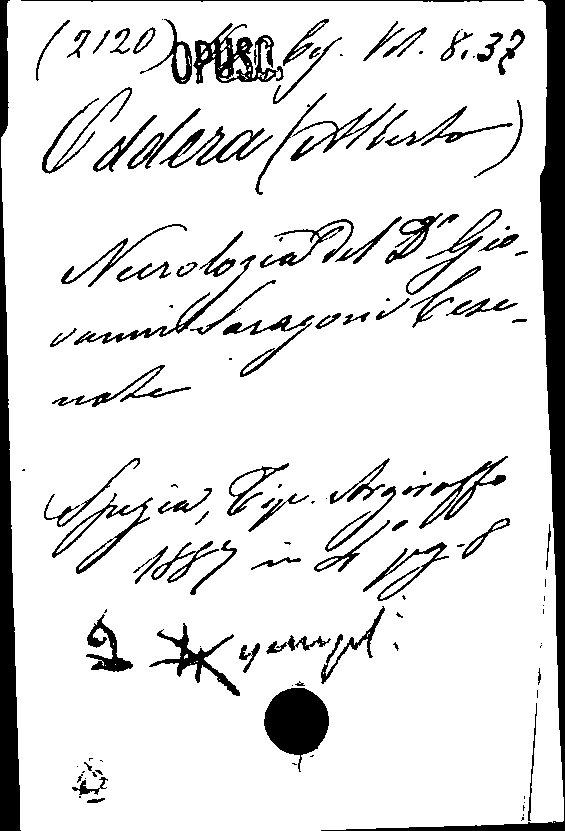 (2120) OPUSC. Vol. 8.37
Oddera (Alberto)
Necrologia del Dr Gio-
vanni Saragoni Cese-
nate
Spezia, Tip. Argiroffo
1887 in 4° pg. 8
2